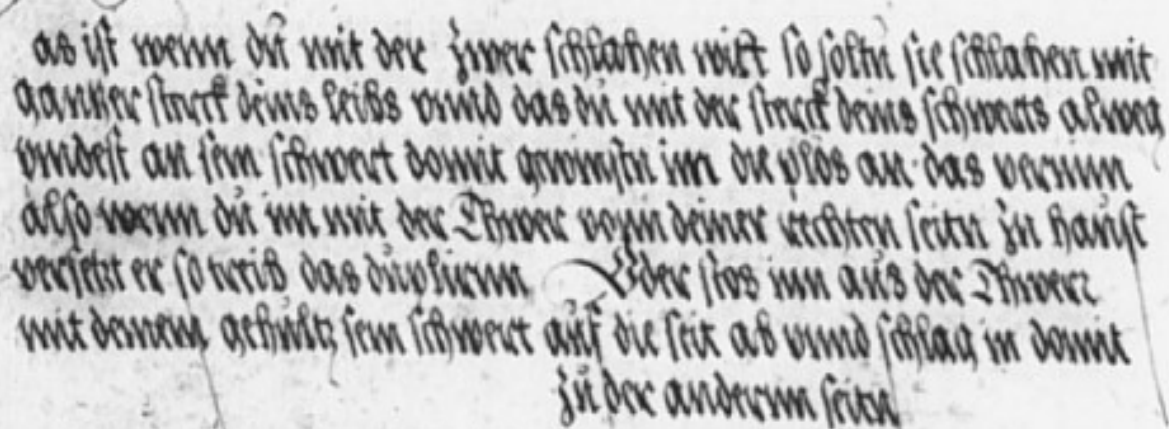 as ist wenn dŭ mit der zwer schlahen wilt so soltu sie schlahen mit
ganntzer sterck deins leibs vnnd das dŭ mit der sterck deins schwerts alweg
vindest an sein schwert domit gewinstu im die plös an das vernim
also wenn dŭ im mit der Thwer vonn deiner rechten seitn zŭ haŭst
versetzt er so treib das dŭplirnn Oder stos inn aŭs der Thwerr
mit deinem gehŭltz sein schwert aŭf die seit ab vnnd schlag in domit
zŭ der andernn seitn